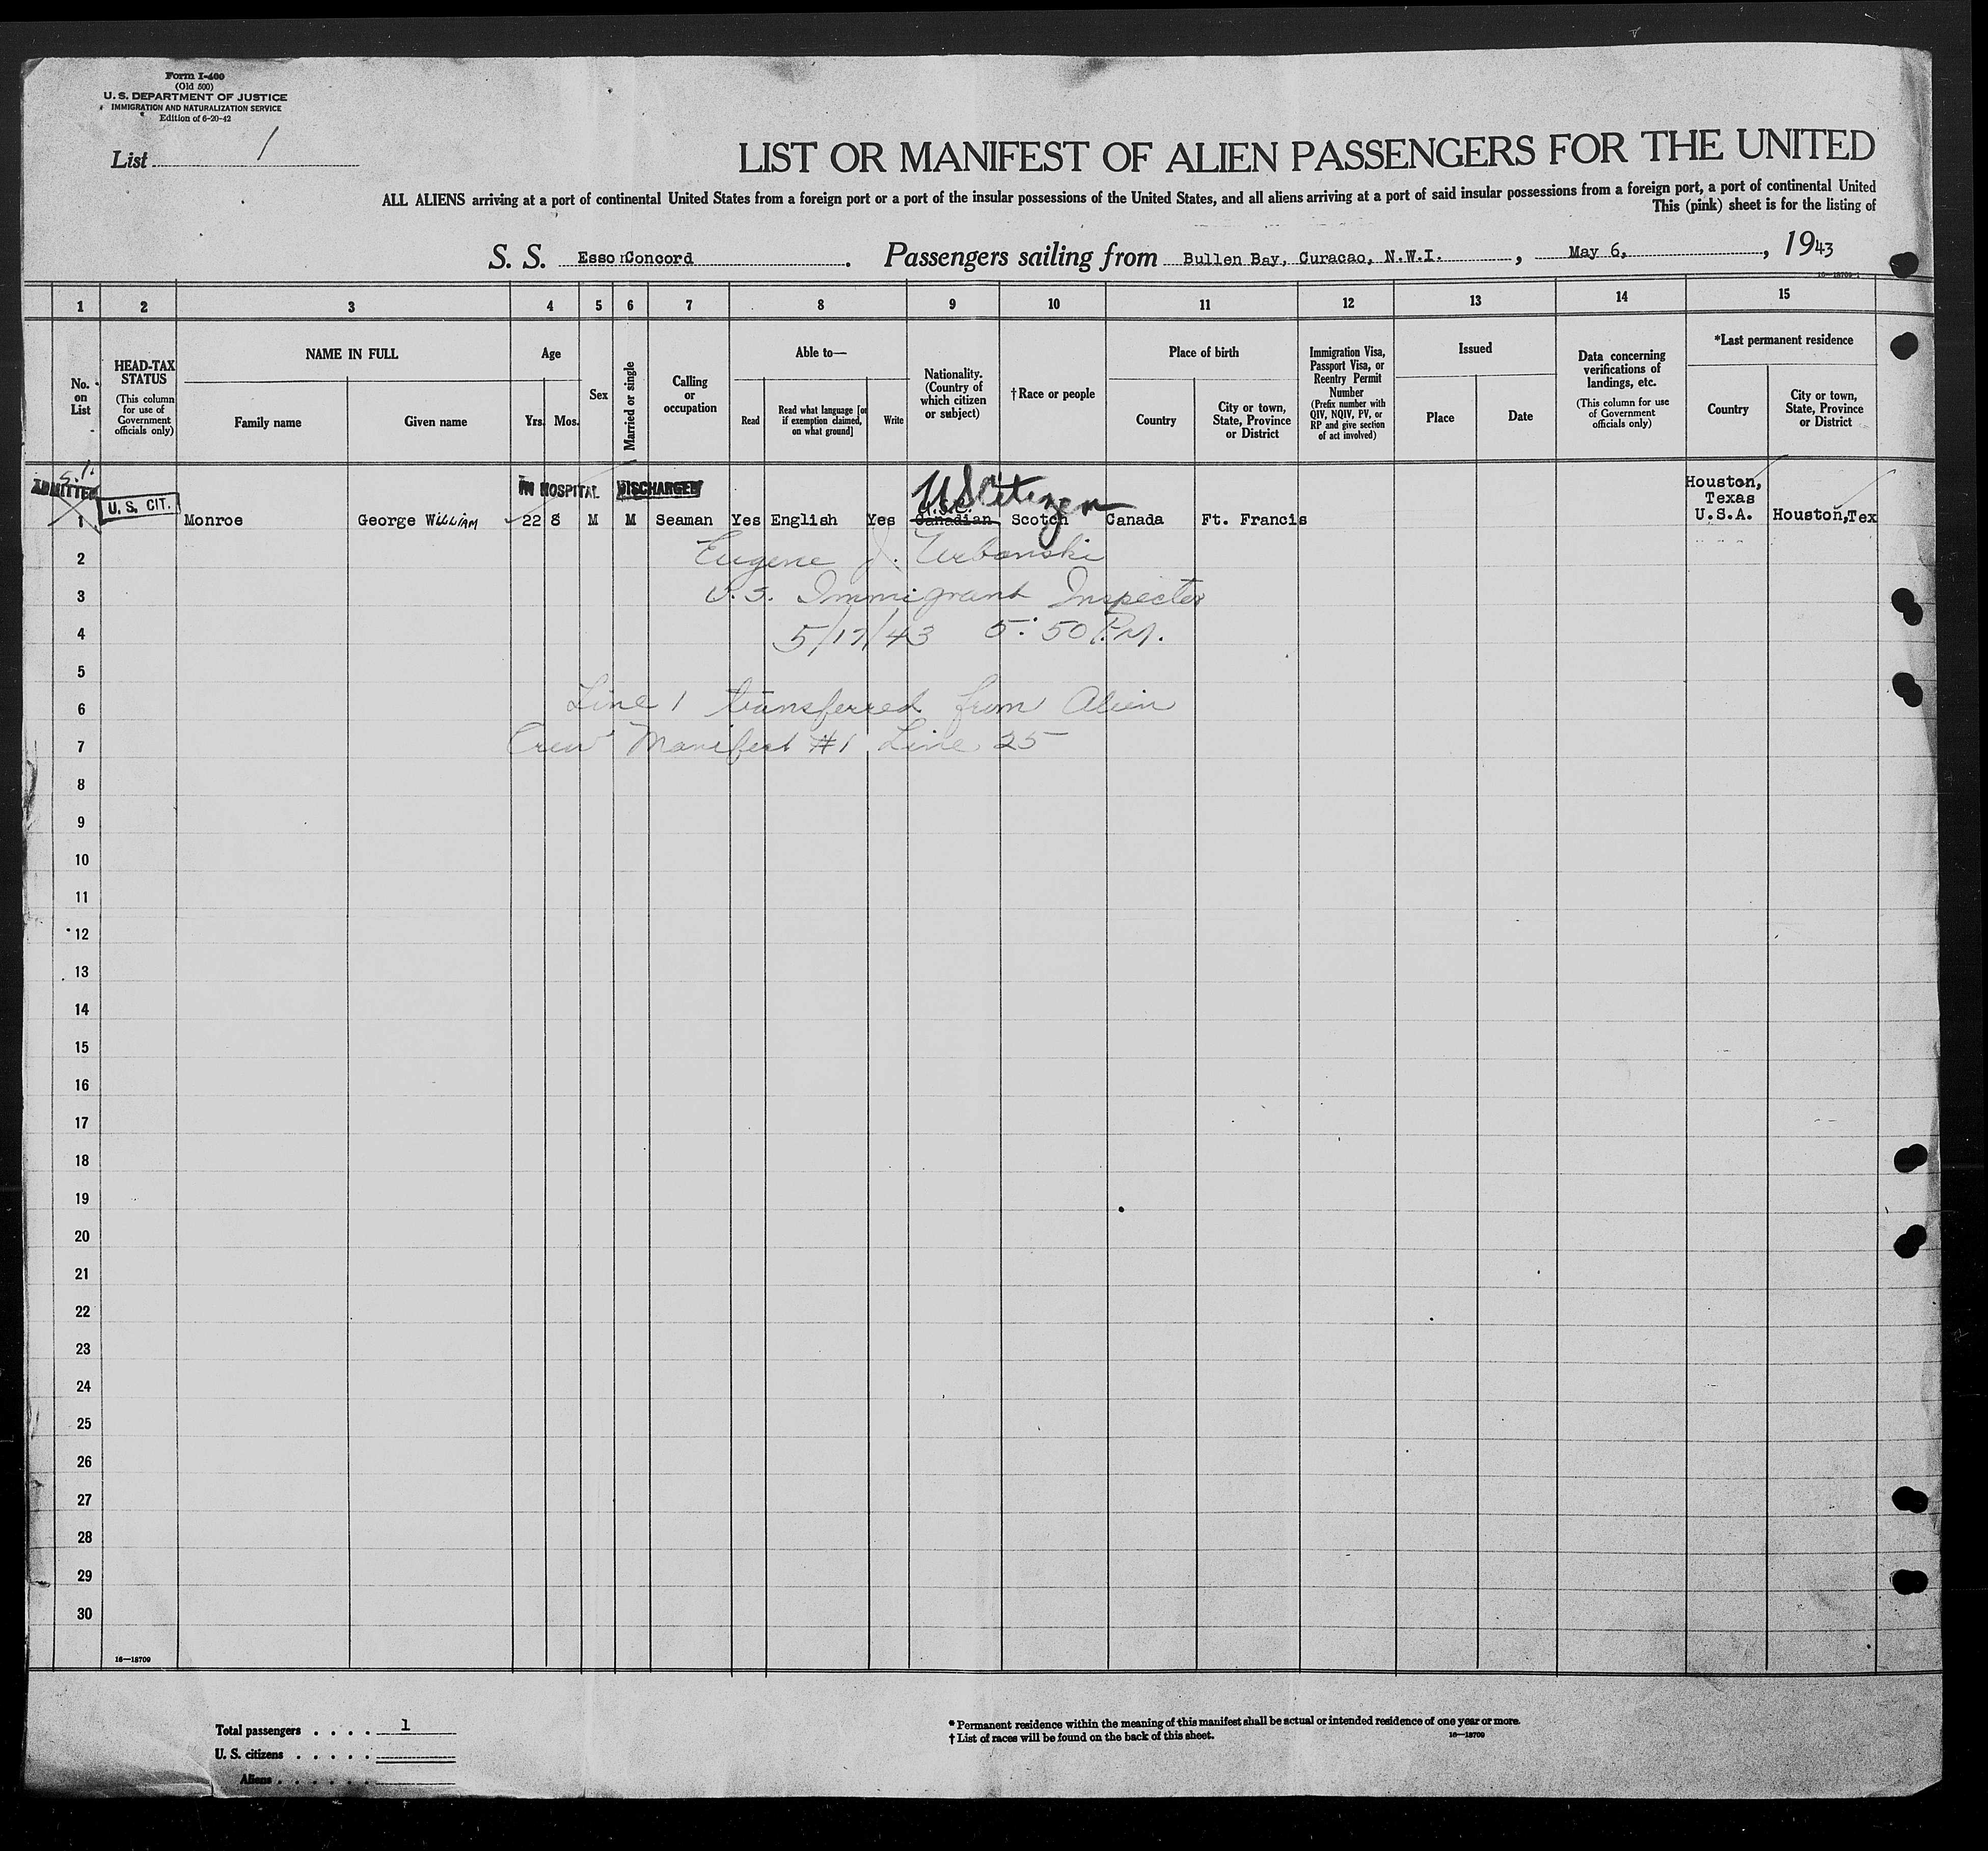 Form I-400
(Old 500)
U. S. DEPARTMENT OF JUSTICE
IMMIGRATION AND NATURALIZATION SERVICE
Edition of 6-20-42
List 1
LIST OR MANIFEST OF ALIEN PASSENGERS FOR THE UNITED
ALL ALIENS arriving at a port of continental United States from a foreign port or a port of the insular possessions of the United States, and all aliens arriving at a port of said insular possessions from a foreign port, a port of continental United
This (pink) sheet is for the listing of
S. S. Esso Concord. Passengers sailing from Bullen Bay, Curacao, N.W.I. , May 6, , 1943
16—18709-1
1 2 3 4 5 6 7 8 9 10 11 12 13 14 15
No. on List
HEAD-TAX STATUS
(This column for use of Government officials only)
NAME IN FULL
Family name
Given name
Age
Yrs.
Mos.
Sex
Married or single
Calling or occupation
Able to—
Read
Read what language [or if exemption claimed, on what ground]
Write
Nationality. (Country of which citizen or subject)
† Race or people
Place of birth
Country
City or town, State, Province or District
Immigration Visa, Passport Visa, or Reentry Permit Number
(Prefix number with QIV, NQIV, PV, or RP and give section of act involved)
Issued
Place
Date
Data concerning verifications of landings, etc.
(This column for use of Government officials only)
*Last permanent residence
Country
City or town, State, Province or District
ADMITTED
U. S. CIT.
IN HOSPITAL DISCHARGED
US Citizen
U.S.C.
Houston,
Texas
U.S.A.
1 Monroe George WILLIAM 22 8 M M Seaman Yes English Yes Canadian Scotch Canada Ft. Francis Houston,Tex
2 Eugene J. Urbanski
3 U.S. Immigrant Inspector
4 5/17/43 5:50 P.M.
5
6 Line 1 transferred from Alien
7 Crew Manifest #1 Line 25
8
9
10
11
12
13
14
15
16
17
18
19
20
21
22
23
24
25
26
27
28
29
30
16—18709
Total passengers . . . . 1
U. S. citizens . . . . .
Aliens . . . . . .
* Permanent residence within the meaning of this manifest shall be actual or intended residence of one year or more.
† List of races will be found on the back of this sheet.
16—18709